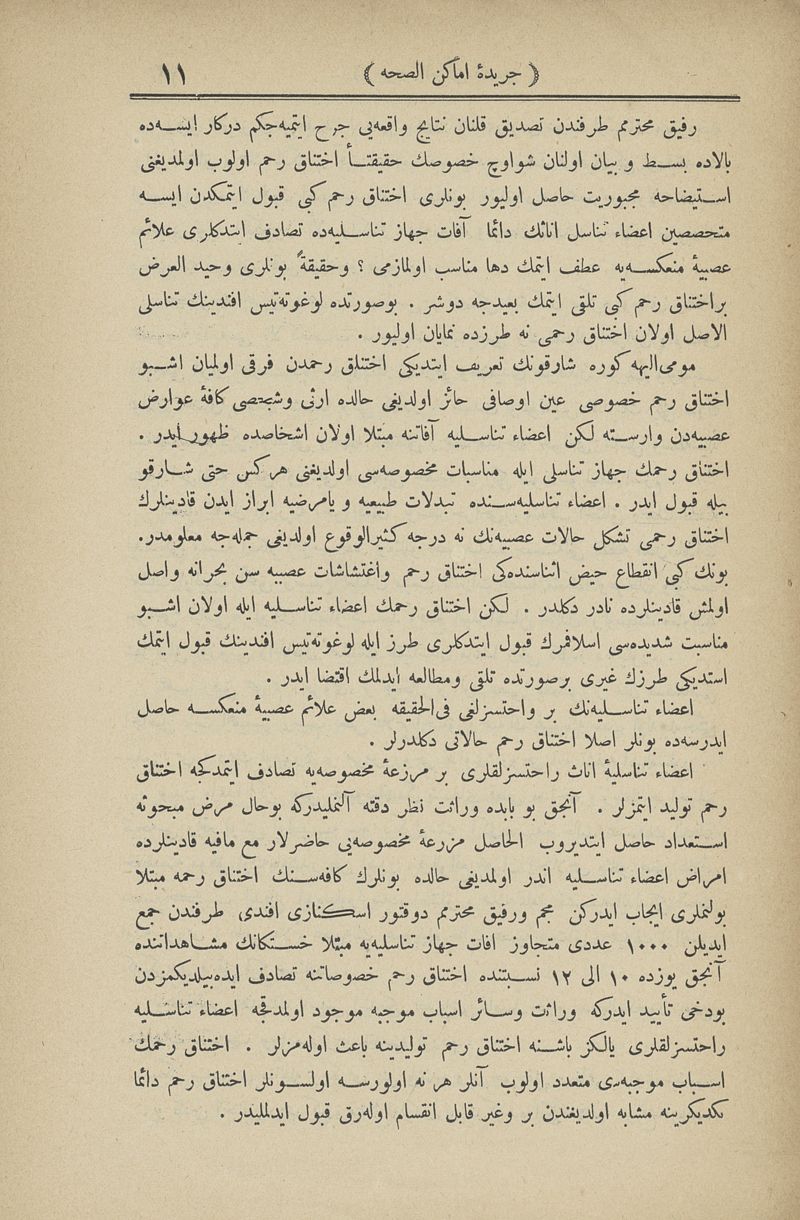 ( جریدهٔ اماکن الصحه ) ١١
رفیق محترمم طرفندن تصدیق قلنان نتایج واقعه‌یی جرح ایتمیه‌جکم درکار ایسه‌ده
بالاده بسط و بیان اولنان شواوچ خصوصك حقیقتاً اختناق رحم اولوب اولمدیغنی
استیضاحه مجبوریت حاصل اولیور بونلری اختناق رحم کبی قبول ایتمکدن ایسه
متخصصین اعضاء تناسل اناثك دائما آفات جهاز تناسلیه‌ده تصادف ایتدکلری علائم
عصبیهٔ منعکسه‌یه عطف ایتمك دها مناسب اولمازمی ؟ وحقیقةً بونلری وحید العرض
براختناق رحم کبی تلقی ایتمك بعیدجه دوشر . بوصورتده لوغوته‌تیس افندینك تناسلی
الاصل اولان اختناق رحمی نه طرزده نمایان اولیور .
مومی‌الیهه کوره شارقونك تعریف ایتدیکی اختناق رحمدن فرقی اولمیان اشبو
اختناق رحم خصوصی عین اوصافی حائز اولدیغی حالده ارثی وشخصی کافهٔ عوارض
عصبیه‌دن وارسته لکن اعضاء تناسلیه آفاتنه مبتلا اولان اشخاصده ظهور ایدر .
اختناق رحمك جهاز تناسلی ایله مناسبات مخصوصه‌سی اولدیغنی هرکس حتی شارقو
بیله قبول ایدر . اعضاء تناسلیه‌سنده تبدلات طبیعیه و یامرضیه ابراز ایدن قادینلرك
اختناق رحمی تشکل حالات عصبیه‌نك نه درجه کثیرالوقوع اولدیغی جمله‌جه معلومدر.
بونك کبی انقطاع حیض اثناسنده‌کی اختناق رحم واغتشاشات عصبیه سن بحرانه واصل
اولمش قادینلرده نادر دکلدر . لکن اختناق رحمك اعضاء تناسلیه ایله اولان اشبو
مناسبت شدیده‌سی اسلافمزك قبول ایتدکلری طرز ایله لوغوته‌تیس افندینك قبول ایتمك
استدیکی طرزك غیری برصورتده تلقی ومطالعه ایدلمك اقتضا ایدر .
اعضاء تناسلیه‌نك بر راحتسزلغی فی‌الحقیقه بعض علائم عصبیهٔ منعکسه حاصل
ایدرسه‌ده بونلر اصلا اختناق رحم حالاتی دکلدرلر .
اعضاء تناسلیهٔ اناث راحتسزلقلری بر مزرعهٔ مخصوصه‌یه تصادف ایتمدکجه اختناق
رحم تولید ایتمزلر . آنجق بو بابده وراثت نظر دقته آلنملیدرکه بوحال مرض مبحوثه
استعداد حاصل ایتدیروب الحاصل مزرعهٔ مخصوصه‌یی حاضرلار مع مافیه قادینلرده
امراض اعضاء تناسلیه اندر اولمدیغی حالده بونلرك کافه‌سنك اختناق رحمه مبتلا
بولنملری ایجاب ایدرکن محم ورفیق محترمم دوقتور اسکنازی افندی طرفندن جمع
ایدیلن ١٠٠٠ عددی متجاوز افات جهاز تناسلیه‌یه مبتلا خستکانك مشاهداتنده
آنجق یوزده ١٠ الی ١٢ نسبتنده اختناق رحم خصوصاتنه تصادف ایده‌بیلدیکمزدن
بودخی تأیید ایدرکه وراثت وسائر اسباب موجبه موجود اولمدقجه اعضاء تناسلیه
راحتسزلقلری یالکز باشنه اختناق رحم تولیدینه باعث اوله‌مزلر . اختناق رحمك
اسباب موجبه‌سی متعدد اولوب آنلر هر نه اولورسه اولسونلر اختناق رحم دائما
یکدیکرینه مشابه اولدیغندن بر وغیر قابل انقسام اوله‌رق قبول ایدلملیدر .